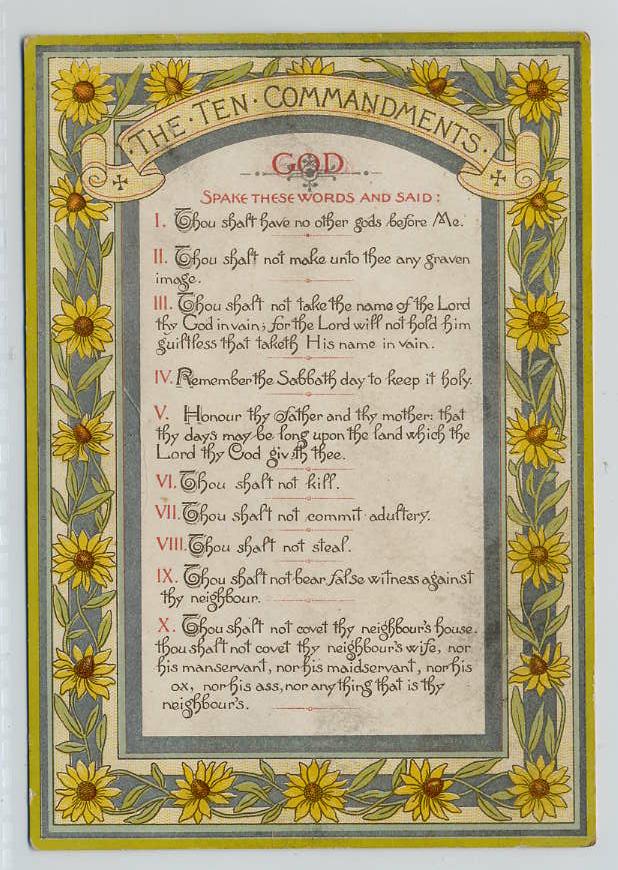 THE · TEN · COMMANDMENTS ·
GOD
SPAKE THESE WORDS AND SAID:
I. Thou shalt have no other gods before Me.
II. Thou shalt not make unto thee any graven
image.
III. Thou shalt not take the name of the Lord
thy God in vain; for the Lord will not hold him
guiltless that taketh His name in vain.
IV. Remember the Sabbath day to keep it holy.
V. Honour thy father and thy mother: that
thy days may be long upon the land which the
Lord thy God giveth thee.
VI. Thou shalt not kill.
VII. Thou shalt not commit adultery.
VIII. Thou shalt not steal.
IX. Thou shalt not bear false witness against
thy neighbour.
X. Thou shalt not covet thy neighbour's house.
thou shalt not covet thy neighbour's wife, nor
his manservant, nor his maidservant, nor his
ox, nor his ass, nor any thing that is thy
neighbour's.